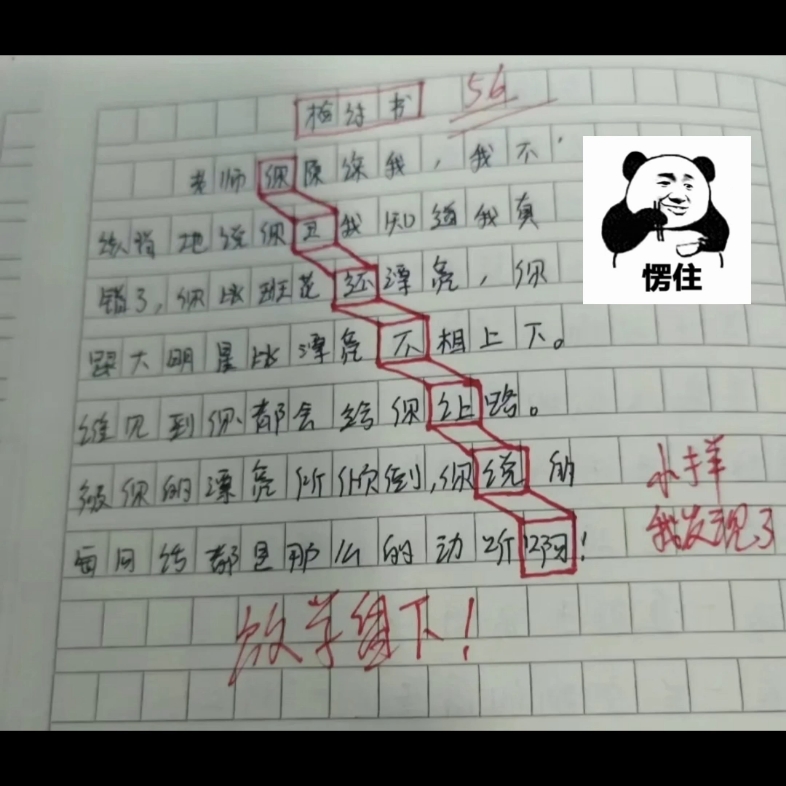 检讨书 56
老师你原谅我，我不
该背地说你丑我知道我真
错了，你比班花还漂亮，你
跟大明星比漂亮不相上下。
谁见到你都会给你让路。
被你的漂亮所倾倒，你说的
每句话都是那么的动听啊！
小样
我发现了
放学留下！
愣住